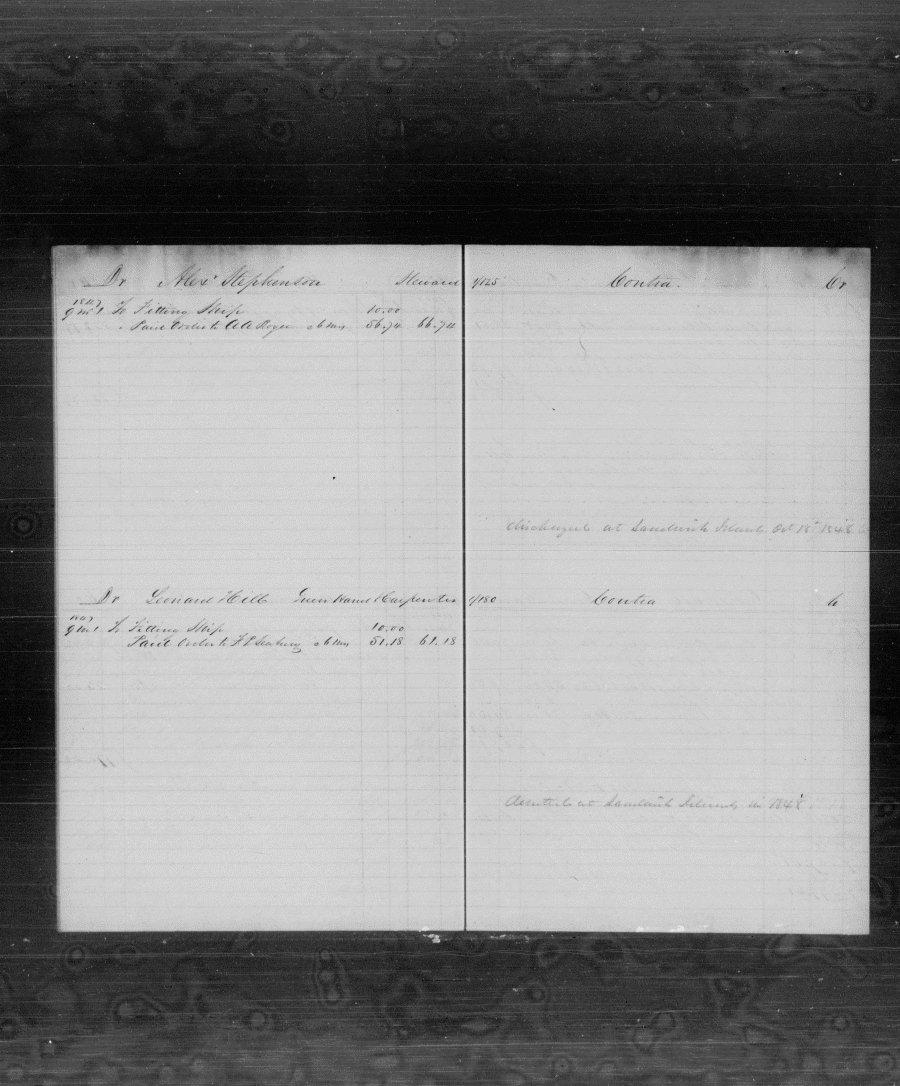 Dr Alexr Stephenson Steward 1/125 Contra. Cr
1847
9 mo 1 To Fitting Ship 10.00
" Paid Order to 56.74 66.74
discharged at Sandwich Islands Oct 18th 1848
Dr Leonard Hill Green Hand & Carpenter 1/180 Contra Cr
1847
9 mo 1 To Fitting Ship 10.00
Paid Order to 51.18 61.18
deserted at Sandwich Islands in 1848